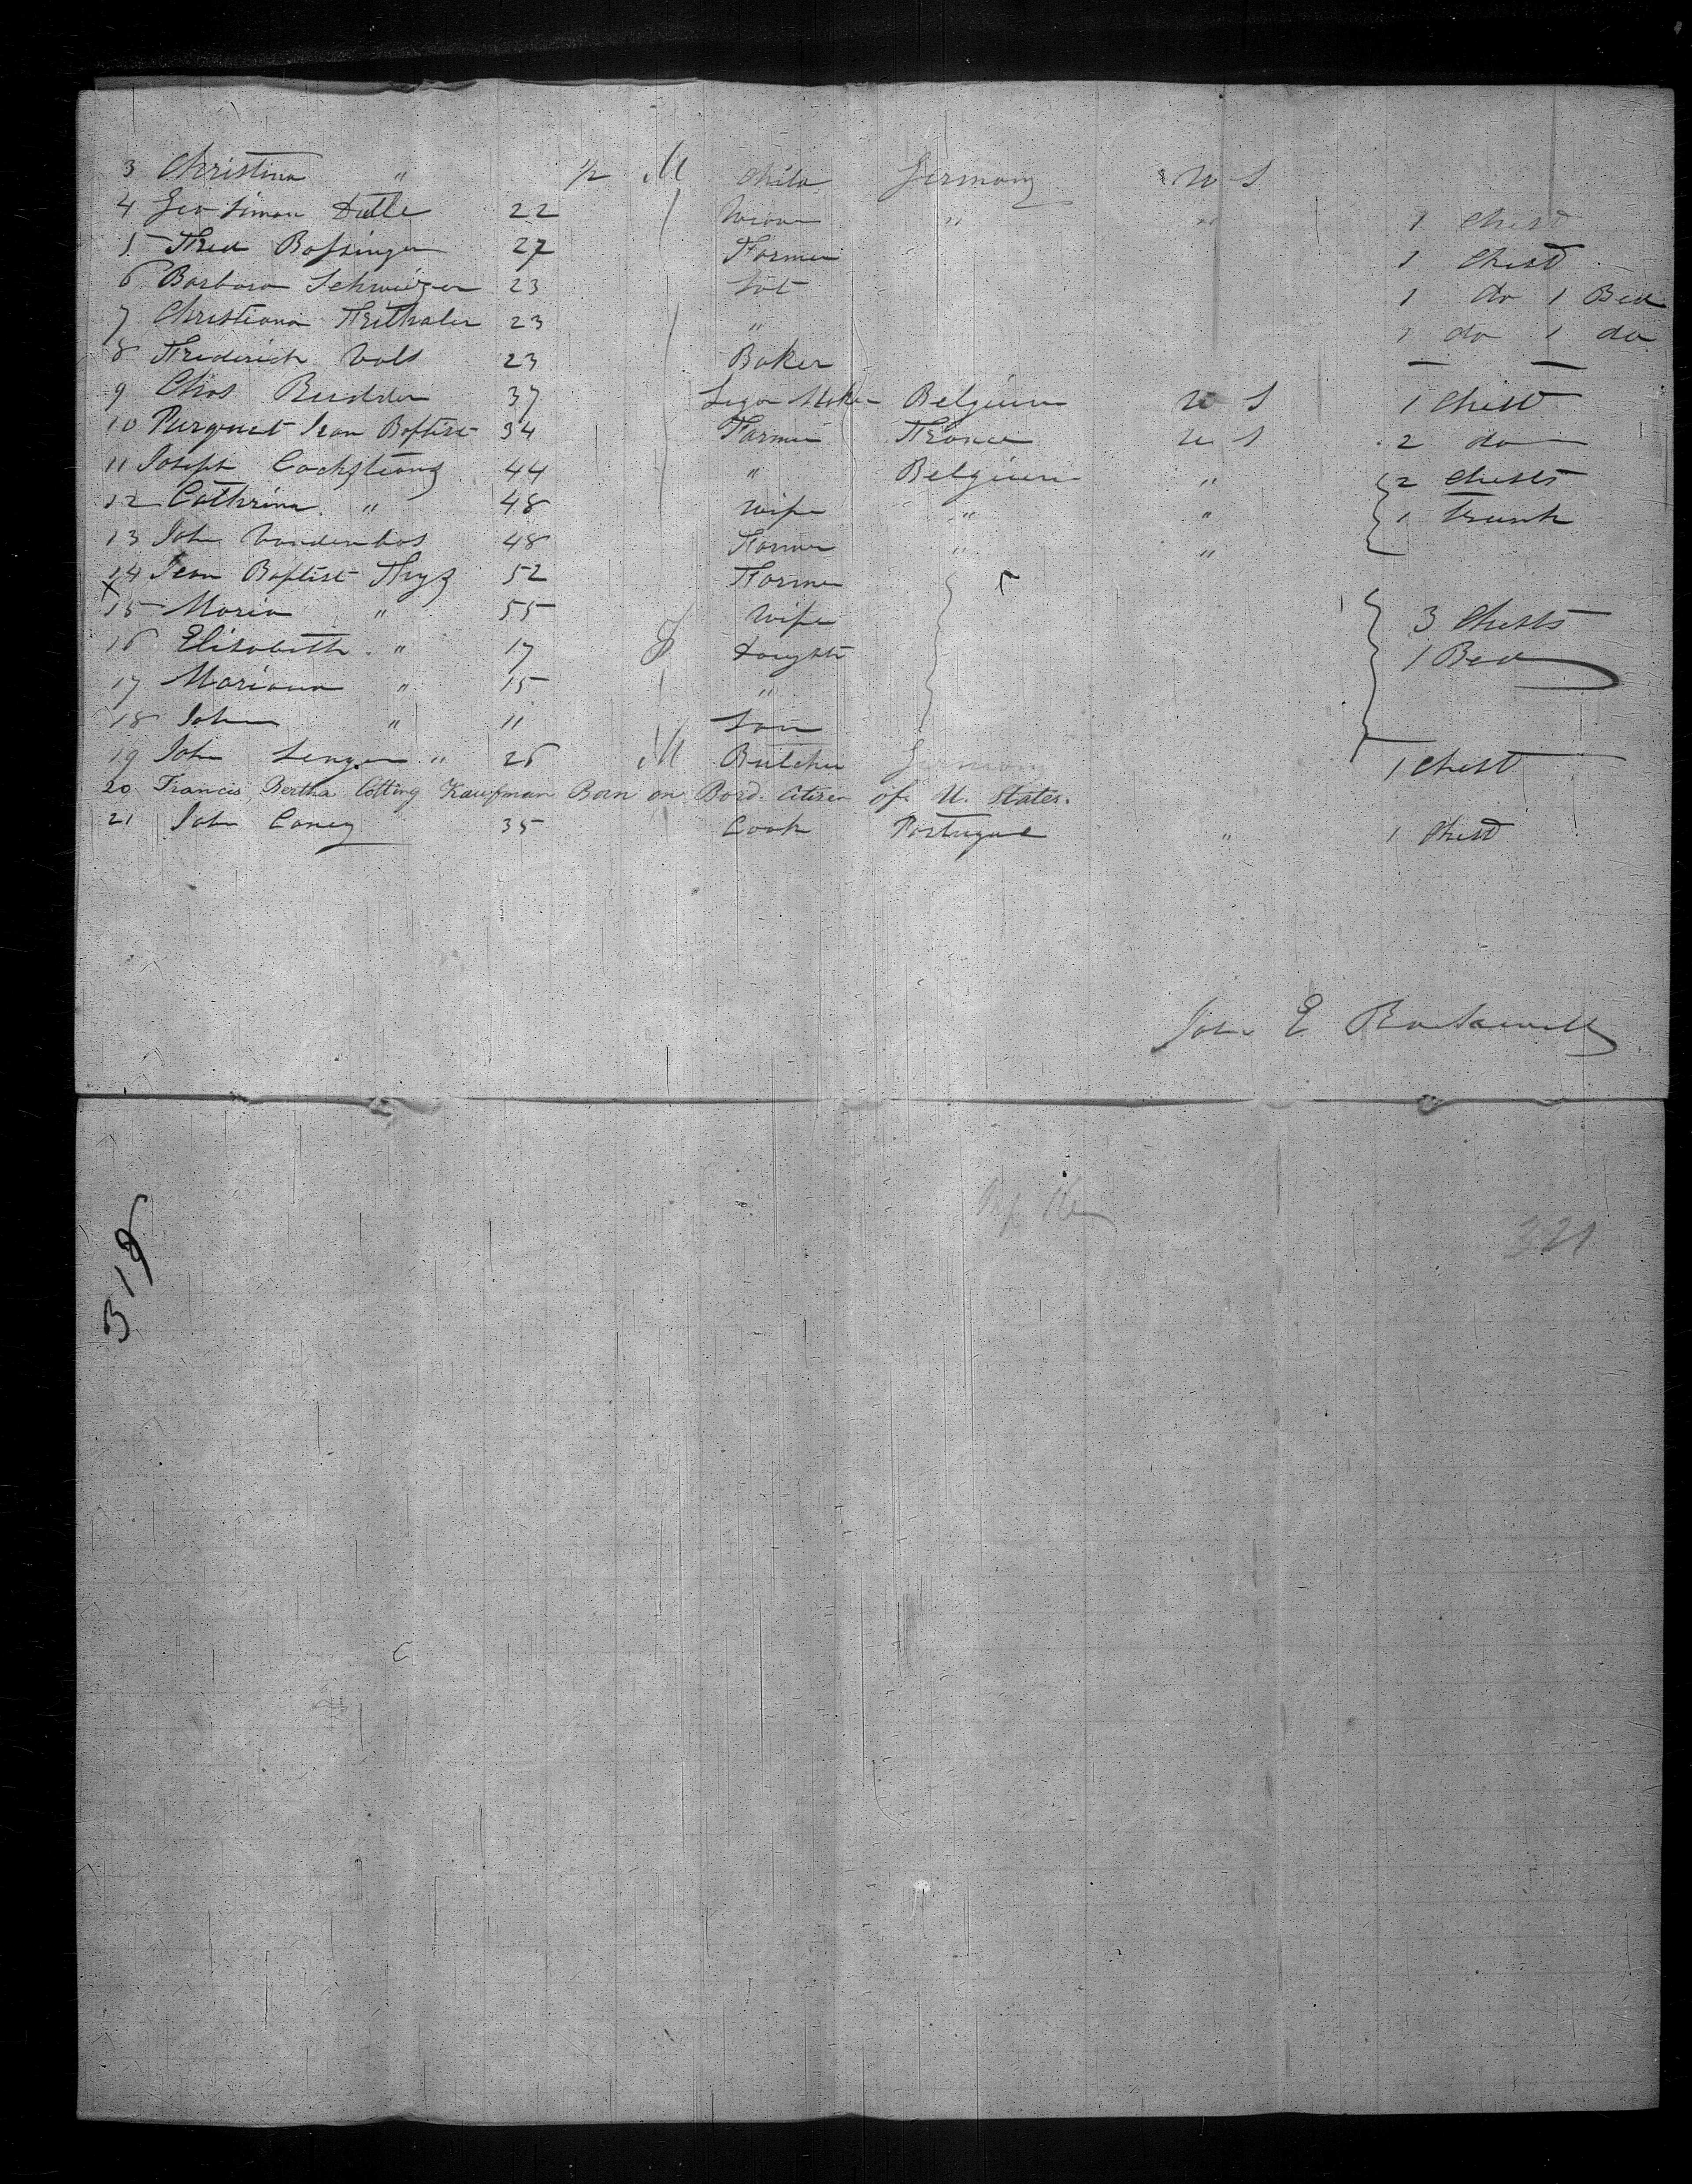 3 Christina " 1/2 M Child Germany U S
4 Geo Simon Dulle 22 " " 1 Chest
5 Fred Bossinger 27 Farmer 1 Chest
6 Barbara Schweizer 23 1 do 1 Bed
7 Christiana Freithaler 23 " 1 do 1 do
8 Frederich Vols 23 Baker — —
9 Chas Rudder 37 Segar Maker Belgium U S 1 Chest
10 Purquet Jean Baptist 34 Farmer France U S 2 do
11 Joseph 44 " Belgium " 2 Chests
12 Cathrina " 48 Wife " " 1 Trunk
13 John Vandenbos 48 Farmer " "
14 Jean Baptist Thys 52 Farmer
15 Maria " 55 Wife 3 Chests
16 Elisabeth " 17 F Daughter 1 Bed
17 Mariana " 15 "
18 John " 11 Son
19 John Senger " 26 M Butcher Germany 1 Chest
20 Francis Bertha Cotting Kaufman Born on Bord. Citizen of U. States.
21 John Caney 35 Cook Portugal " 1 Chest
John E
321
318